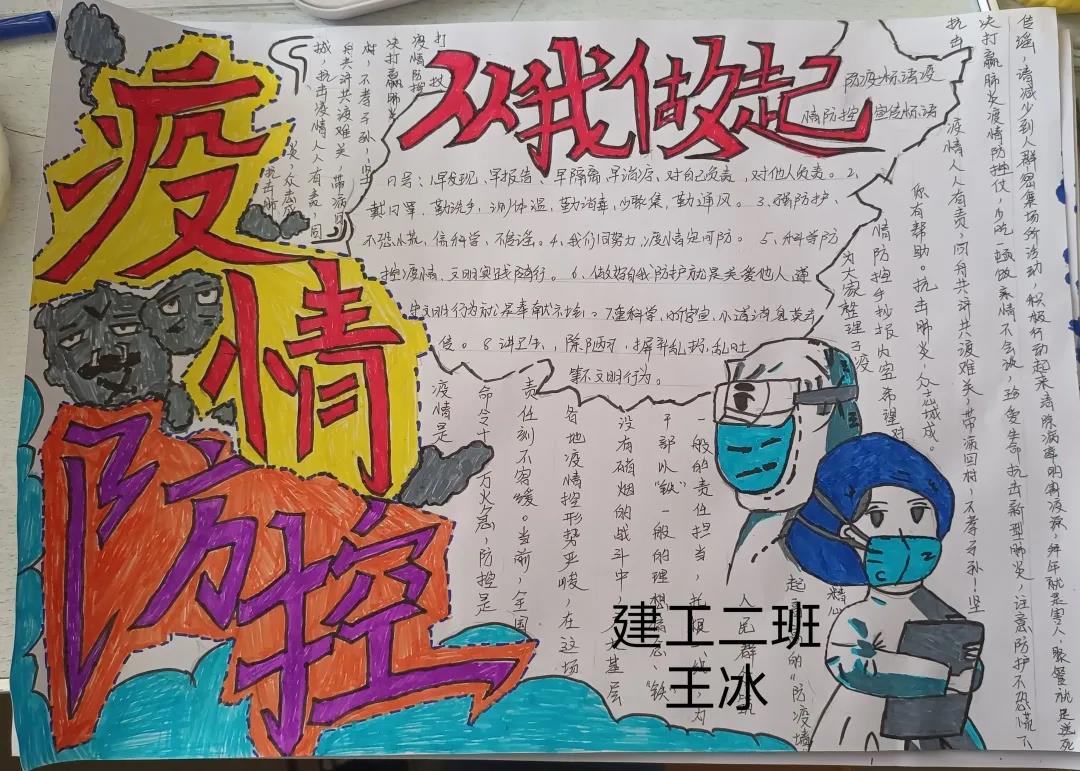 疫情
防控
从我做起
防疫标语疫
情防控宣传标语
口号:1.早发现、早报告、早隔离、早治疗,对自己负责,对他人负责。2、
戴口罩,勤洗手,测体温,勤消毒,少聚集,勤通风。3.强防护、
不恐慌,信科学、不传谣。4.我们同努力,疫情定可防。5、科学防
控疫情、文明实践随行。6、做好自我防护就是关爱他人遵
守文明行为就是奉献
信。8.讲卫生,除陋习,摒弃乱扔,乱吐
等不文明行为。
疫情是
命令十万火急,防控是
责任刻不容缓。当前,全国
各地疫情控形势严峻,在这场
没有硝烟的战斗中,
基层
干部以“铁”一般的理想信念、“铁”
一般的责任担当,
人民群
起
的“防疫墙
精心
为大家整理了疫
情防控手抄报内容希望对
你有帮助。抗击肺炎,众志成城。
疫情人人有责,同舟共济共渡难关,带病回村,不孝子孙!坚
抗击
决打赢肺炎疫情防控仗,少吃一顿饭亲情不会淡,珍爱生命抗击新型肺炎,注意防护不恐慌不
传谣,请减少到人群密集场所活动,积极行动起来清除病毒
打
疫情防控
决打赢肺
村,不孝子孙!坚
舟共济共渡难关,带病回
城,抗击疫情人人有责,同
炎,众志成
抗击肺
建工二班
王冰